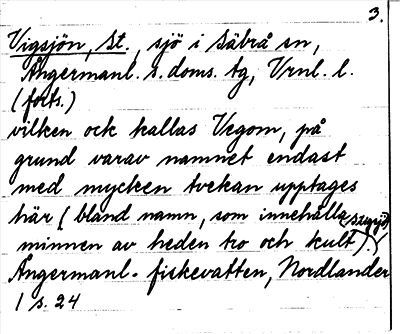 3.
Vigsjön, St., sjö i Säbrå sn,
Ångermanl. s. doms. tg, Vrnl. l.
(forts.)
vilken ock kallas Vegom, på
grund varav namnet endast
med mycken tvekan upptages
här (bland namn, som innehålla
minnen av heden tro och kult)
Ångermanl. fiskevatten, Nordlander
1 s. 24